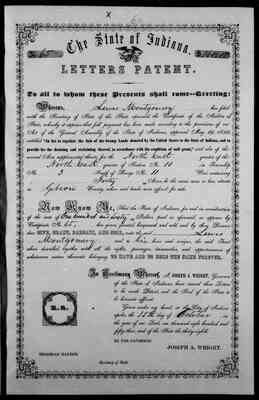 X
The State of Indiana.
LETTERS PATENT.
To all to whom these Presents shall come—Greeting:
Whereas, Lewis Montgomery has filed
with the Secretary of State of the State aforesaid the Certificate of the Auditor of
State, whereby it appears that full payment has been made according to the provisions of an
Act of the General Assembly of the State of Indiana, approved May
entitled "An Act to regulate the sale of the Swamp Lands donated by the United States to the State of Indiana, and to
provide for the draining and reclaiming thereof, in accordance with the condition of said grant," and also of the
several Acts supplementary thereto for the North East quarter of the
North East quarter of Section No. 31 in Township
No. of Range No. 11 West containing
Forty Acres be the same more or less situate
in Gibson County,
Now Know Ye, That the State of Indiana for and in consideration
of the sum of One hundred and Dollars paid as aforesaid, as appears by
Certificate No. has given, granted, bargained and sold, and by these Presents
does GIVE, GRANT, BARGAIN, AND SELL, unto the said Lewis
Montgomery and to his heirs and assigns, the said Tract
above described together with all the rights, privileges, immunities, and appurtenances of
whatsoever nature thereunto belonging, TO HAVE AND TO HOLD THE SAME FOREVER.
L.S.
In Testimony Whereof, I, JOSEPH A. WRIGHT, Governor
of the State of Indiana have caused these Letters
to be made Patent, and the Seal of the State to
be hereunto affixed.
Given under my hand, at the City of Indianapolis, the day of October in
the year of our Lord, one thousand eight hundred and
fifty and of the State the thirty-eighth.
BY THE GOVERNOR
JOSEPH A. WRIGHT.
Secretary of State.